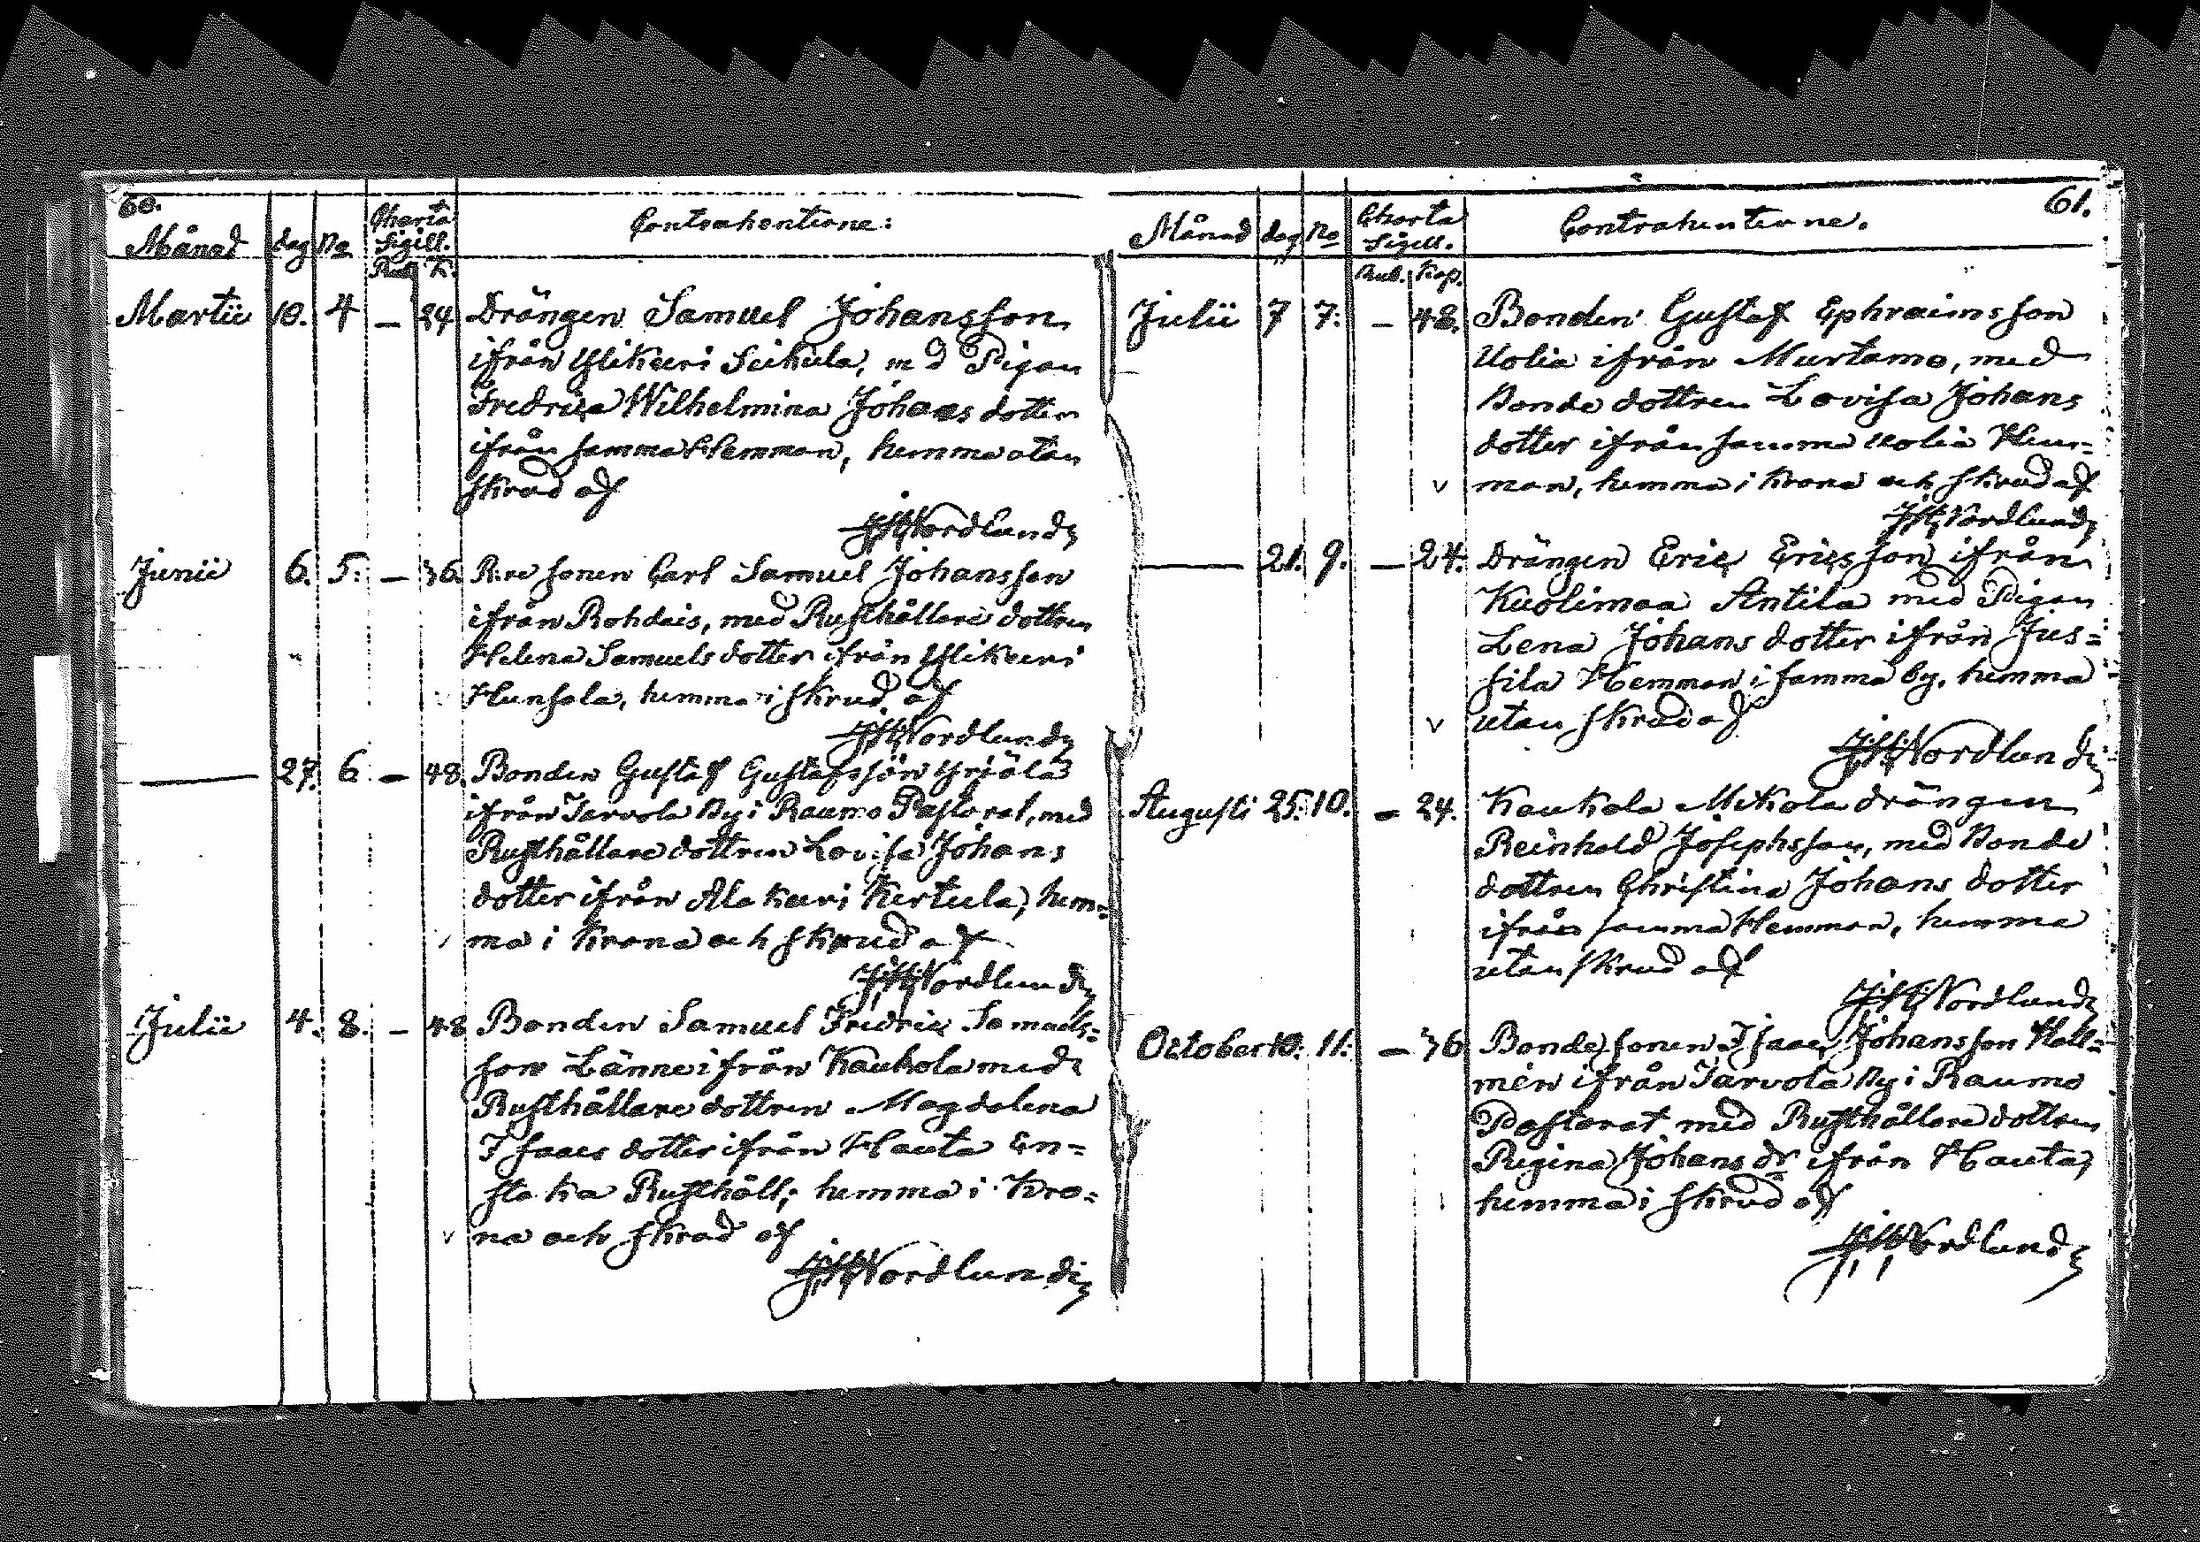 60.
Månad dag No Charta Sigill. Contrahenterne:
Rub K.
Martii 10. 4 — 24 Drängen Samuel Johansson
ifrån Ylikieri Seikula, med Pigan
Fredrica Wilhelmina Johans dotter
ifrån samma Hemman, hemma utan
skrud af
JH Nordlund
Junii 6. 5. — 36. sonen Carl Samuel Johansson
ifrån Rohdais, med Rusthållare dottren
Helena Samuels dotter ifrån Ylikieri
Hunsala, hemma i skrud af
JH Nordlund
— 27. 6 — 48. Bonden Gustaf Gustafsson Yrjälä
ifrån Tarvola By i Raumo Pastorat, med
Rusthållare dottren Lovisa Johans
dotter ifrån Ala Kieri Kertula, hem=
v ma i Krona och skrud af
JH Nordlund
Julii 4. 8. — 48 Bonden Samuel Fredric Samuels=
son Länne ifrån Kaukola med
Rusthållare dottren Magdalena
Isaacs dotter ifrån Hauta En=
staka Rusthåll; hemma i Kro=
v na och skrud af
JH Nordlund
61.
Månad dag No Charta Sigill. Contrahenterne.
Rub. Kop.
Julii 7 7. — 48. Bonden Gustaf Ephraimsson
Uolia ifrån Murtamo, med
Bonde dottren Lovisa Johans
dotter ifrån samma Uolia Hem=
v man, hemma i Krona och skrud af
JH Nordlund
— 21. 9. — 24. Drängen Eric Ericsson ifrån
Kuolimaa Antila med Pigan
Lena Johans dotter ifrån Jus=
sila Hemman i samma by, hemma
v utan skrud af
JH Nordlund
Augusti 25. 10. — 24. Kaukola Mikola drängen
Reinhold Josephsson, med Bonde
dottren Christina Johans dotter
ifrån samma Hemman, hemma
utan skrud af
JH Nordlund
October 10. 11. — 36 Bonde sonen Isaac Johansson Hell=
mén ifrån Tarvola By i Raumo
Pastorat med Rusthållare dottren
Regina Johans dr ifrån Hauta,
hemma i skrud af
JH Nordlund